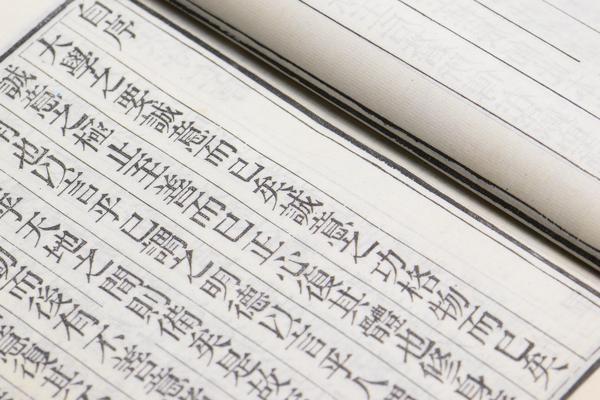 自序
大學之要誠意而已矣誠意之功格物而已矣
誠意之極止至善而已正心復其體也修身
也以言乎己謂之明德以言乎人
乎天地之間則備矣是故
動而後有不善
復其